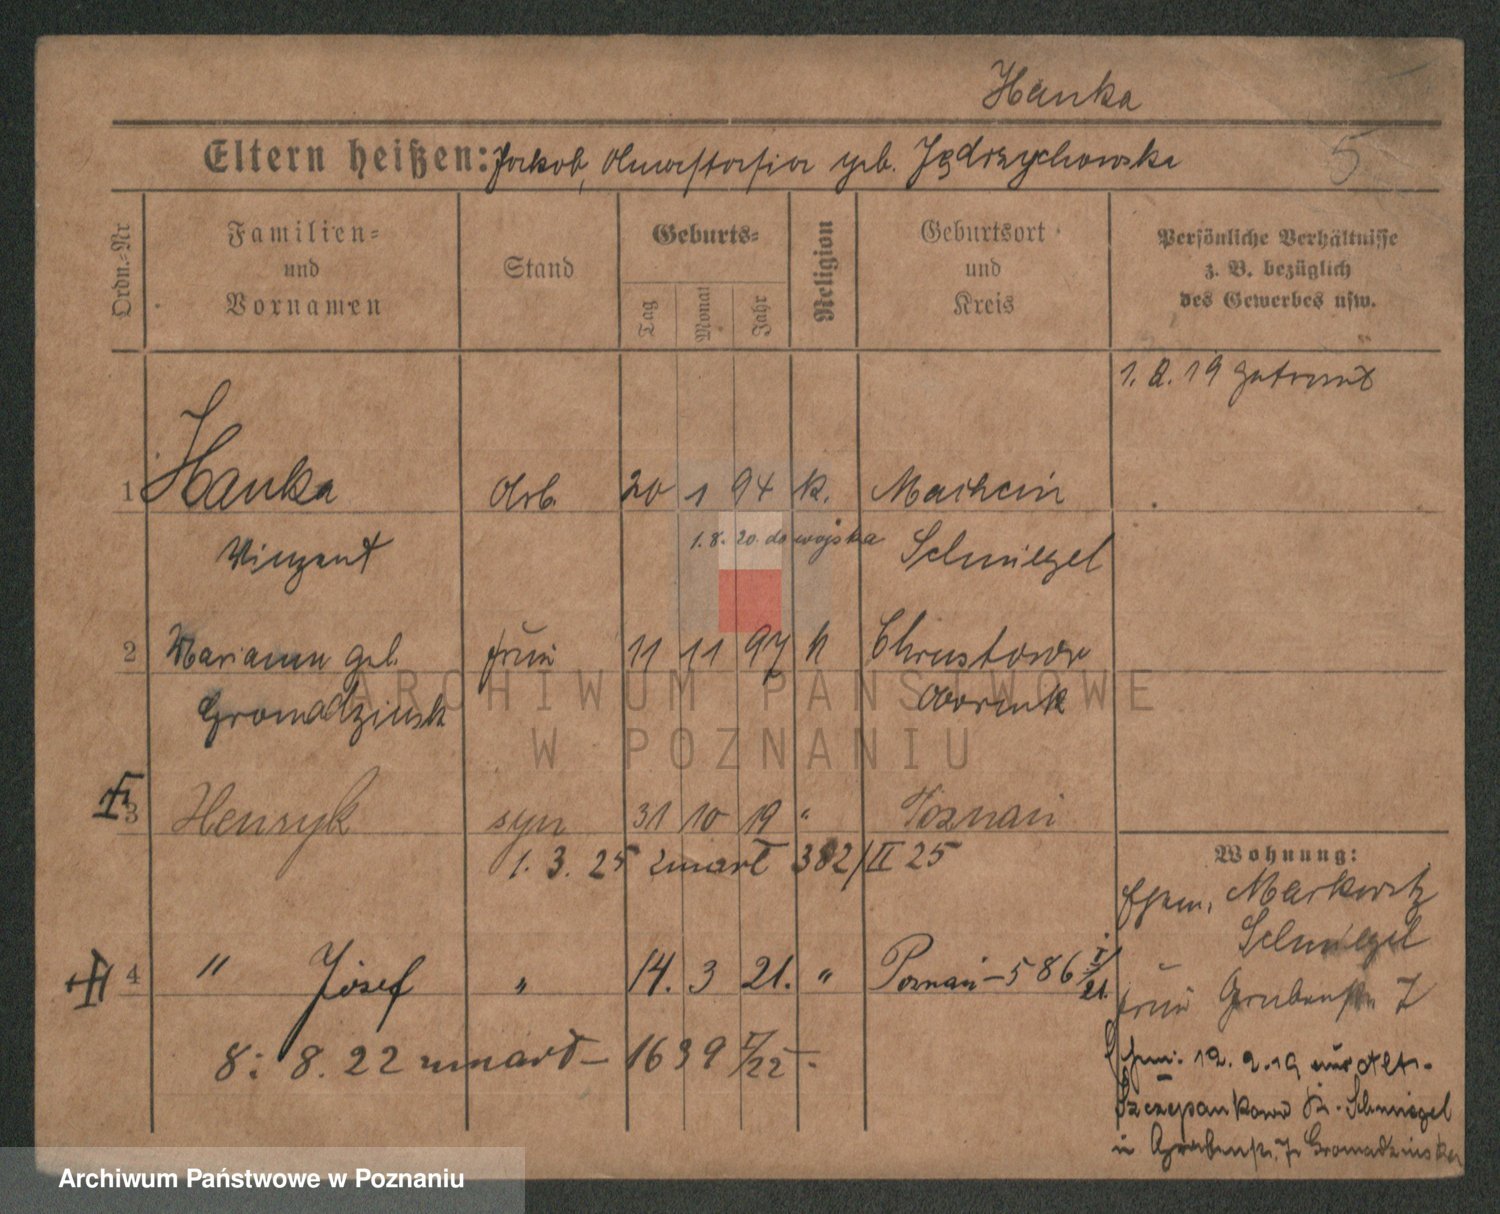 Hanka
5
Eltern heißen: Jakob, Anastasia geb. Jędrzychowska
Ordn.-Nr
Familien-
und
Vornamen
Stand
Geburts-
Tag
Monat
Jahr
Religion
Geburtsort
und
Kreis
Persönliche Verhältnisse
z. B. bezüglich
des Gewerbes usw.
1. 2. 19 getraut
1 Hanka Arb. 20 1 94 k.
Vinzent 1. 8. 20. do wojska Schmiegel
2 Mariann geb. Frau 11 11 97 k Chrustowo
Gromadzinsk Obornik
3 Henryk syn 31 10 19 " Poznań
1. 3. 25 zmarł 382/II 25
4 " Józef " 14. 3 21. " Poznań – 586 I/21.
8. 8. 22 zmarł – 1639 I/22 –
Wohnung:
Ehem. Markowitz
Schmiegel
Frau Grabenstr. 7
Ehem. 12. 2. 19 aus Alt-
Szczepankowo Kr. Schmiegel
n Grabenstr. 7 Gromadzinska
ARCHIWUM PAŃSTWOWE
W POZNANIU
Archiwum Państwowe w Poznaniu